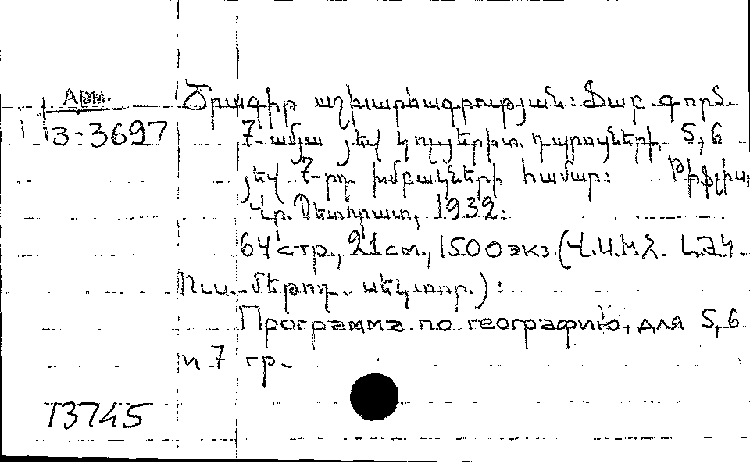 Арм.
3-3697
Ծրագիր աշխարհագրության: Ֆաբ. գործ.
7-ամյա յեվ կոլյերիտ. դպրոցների 5,6
յեվ 7-րդ խմբակների համար: Թիֆլիս,
Վր. Պետհրատ, 1932:
64 стр., 21 см., 1500 экз. (Վ.Ս.Խ.Հ. Լ.Ժ.Կ.
Ուս. մեթոդ. սեկտոր.):
Программа по географию, для 5,6
и 7 гр.
13745